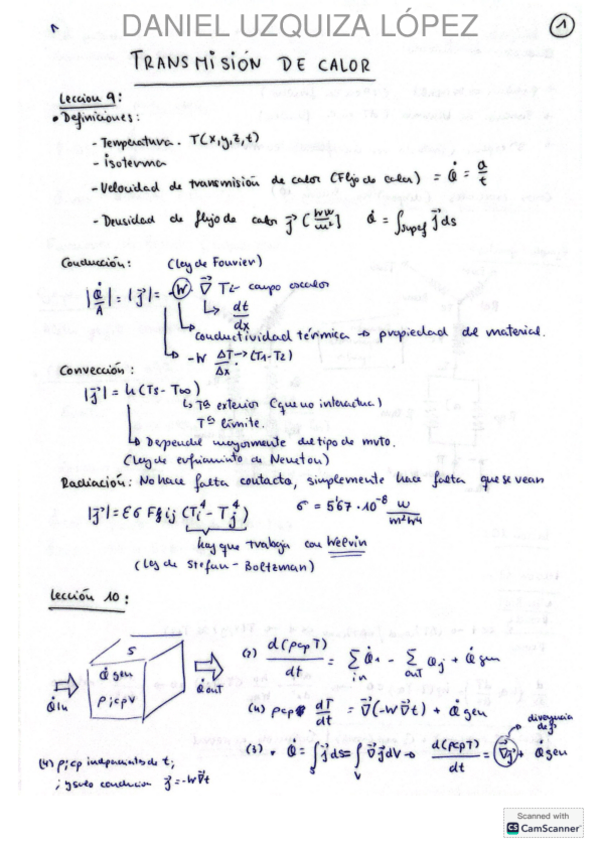 DANIEL UZQUIZA LÓPEZ
1
TRANSMISIÓN DE CALOR
Lección 9:
• Definiciones:
- Temperatura. T(x,y,z,t)
- Isoterma
- Velocidad de transmisión de calor (Flujo de calor) = Q̇ = Q/t
- Densidad de flujo de calor j⃗ [kW/m²] Q̇ = ∫superf j⃗ ds
Conducción: (Ley de Fourier)
|Q̇/A| = |j⃗| = -K · ∇⃗ T ← campo escalar
↳ dt/dx
↳ conductividad térmica → propiedad del material.
↳ -K ΔT/Δx → (T1-T2)
Convección:
|j⃗| = h (Ts - T∞)
↳ Tª exterior (que no interactua)
Tª límite.
↳ Depende mayormente del tipo de mvto.
(Ley de enfriamiento de Newton)
Radiación: No hace falta contacto, simplemente hace falta que se vean
|j⃗| = εσ Fij (Ti⁴ - Tj⁴) σ = 5'67 · 10⁻⁸ W/m²K⁴
hay que trabajar con Kelvin
(Ley de Stefan - Boltzman)
Lección 10:
S
Q̇ gen
ρ; cp V
Q̇ in
Q̇ out
d(ρcpT)/dt = Σin Q̇i - Σout Q̇j + Q̇ gen
(4) ρcp dT/dt = ∇⃗(-K∇⃗t) + Q̇ gen
divergencia de j
(3) • Q̇ = ∫S j⃗ ds = ∫V ∇⃗j⃗ dV → d(ρcpT)/dt = ∇⃗j⃗ + Q̇ gen
(4) ρ; cp independiente de t;
; y solo conduccion j⃗ = -K∇⃗t
Scanned with
CS CamScanner